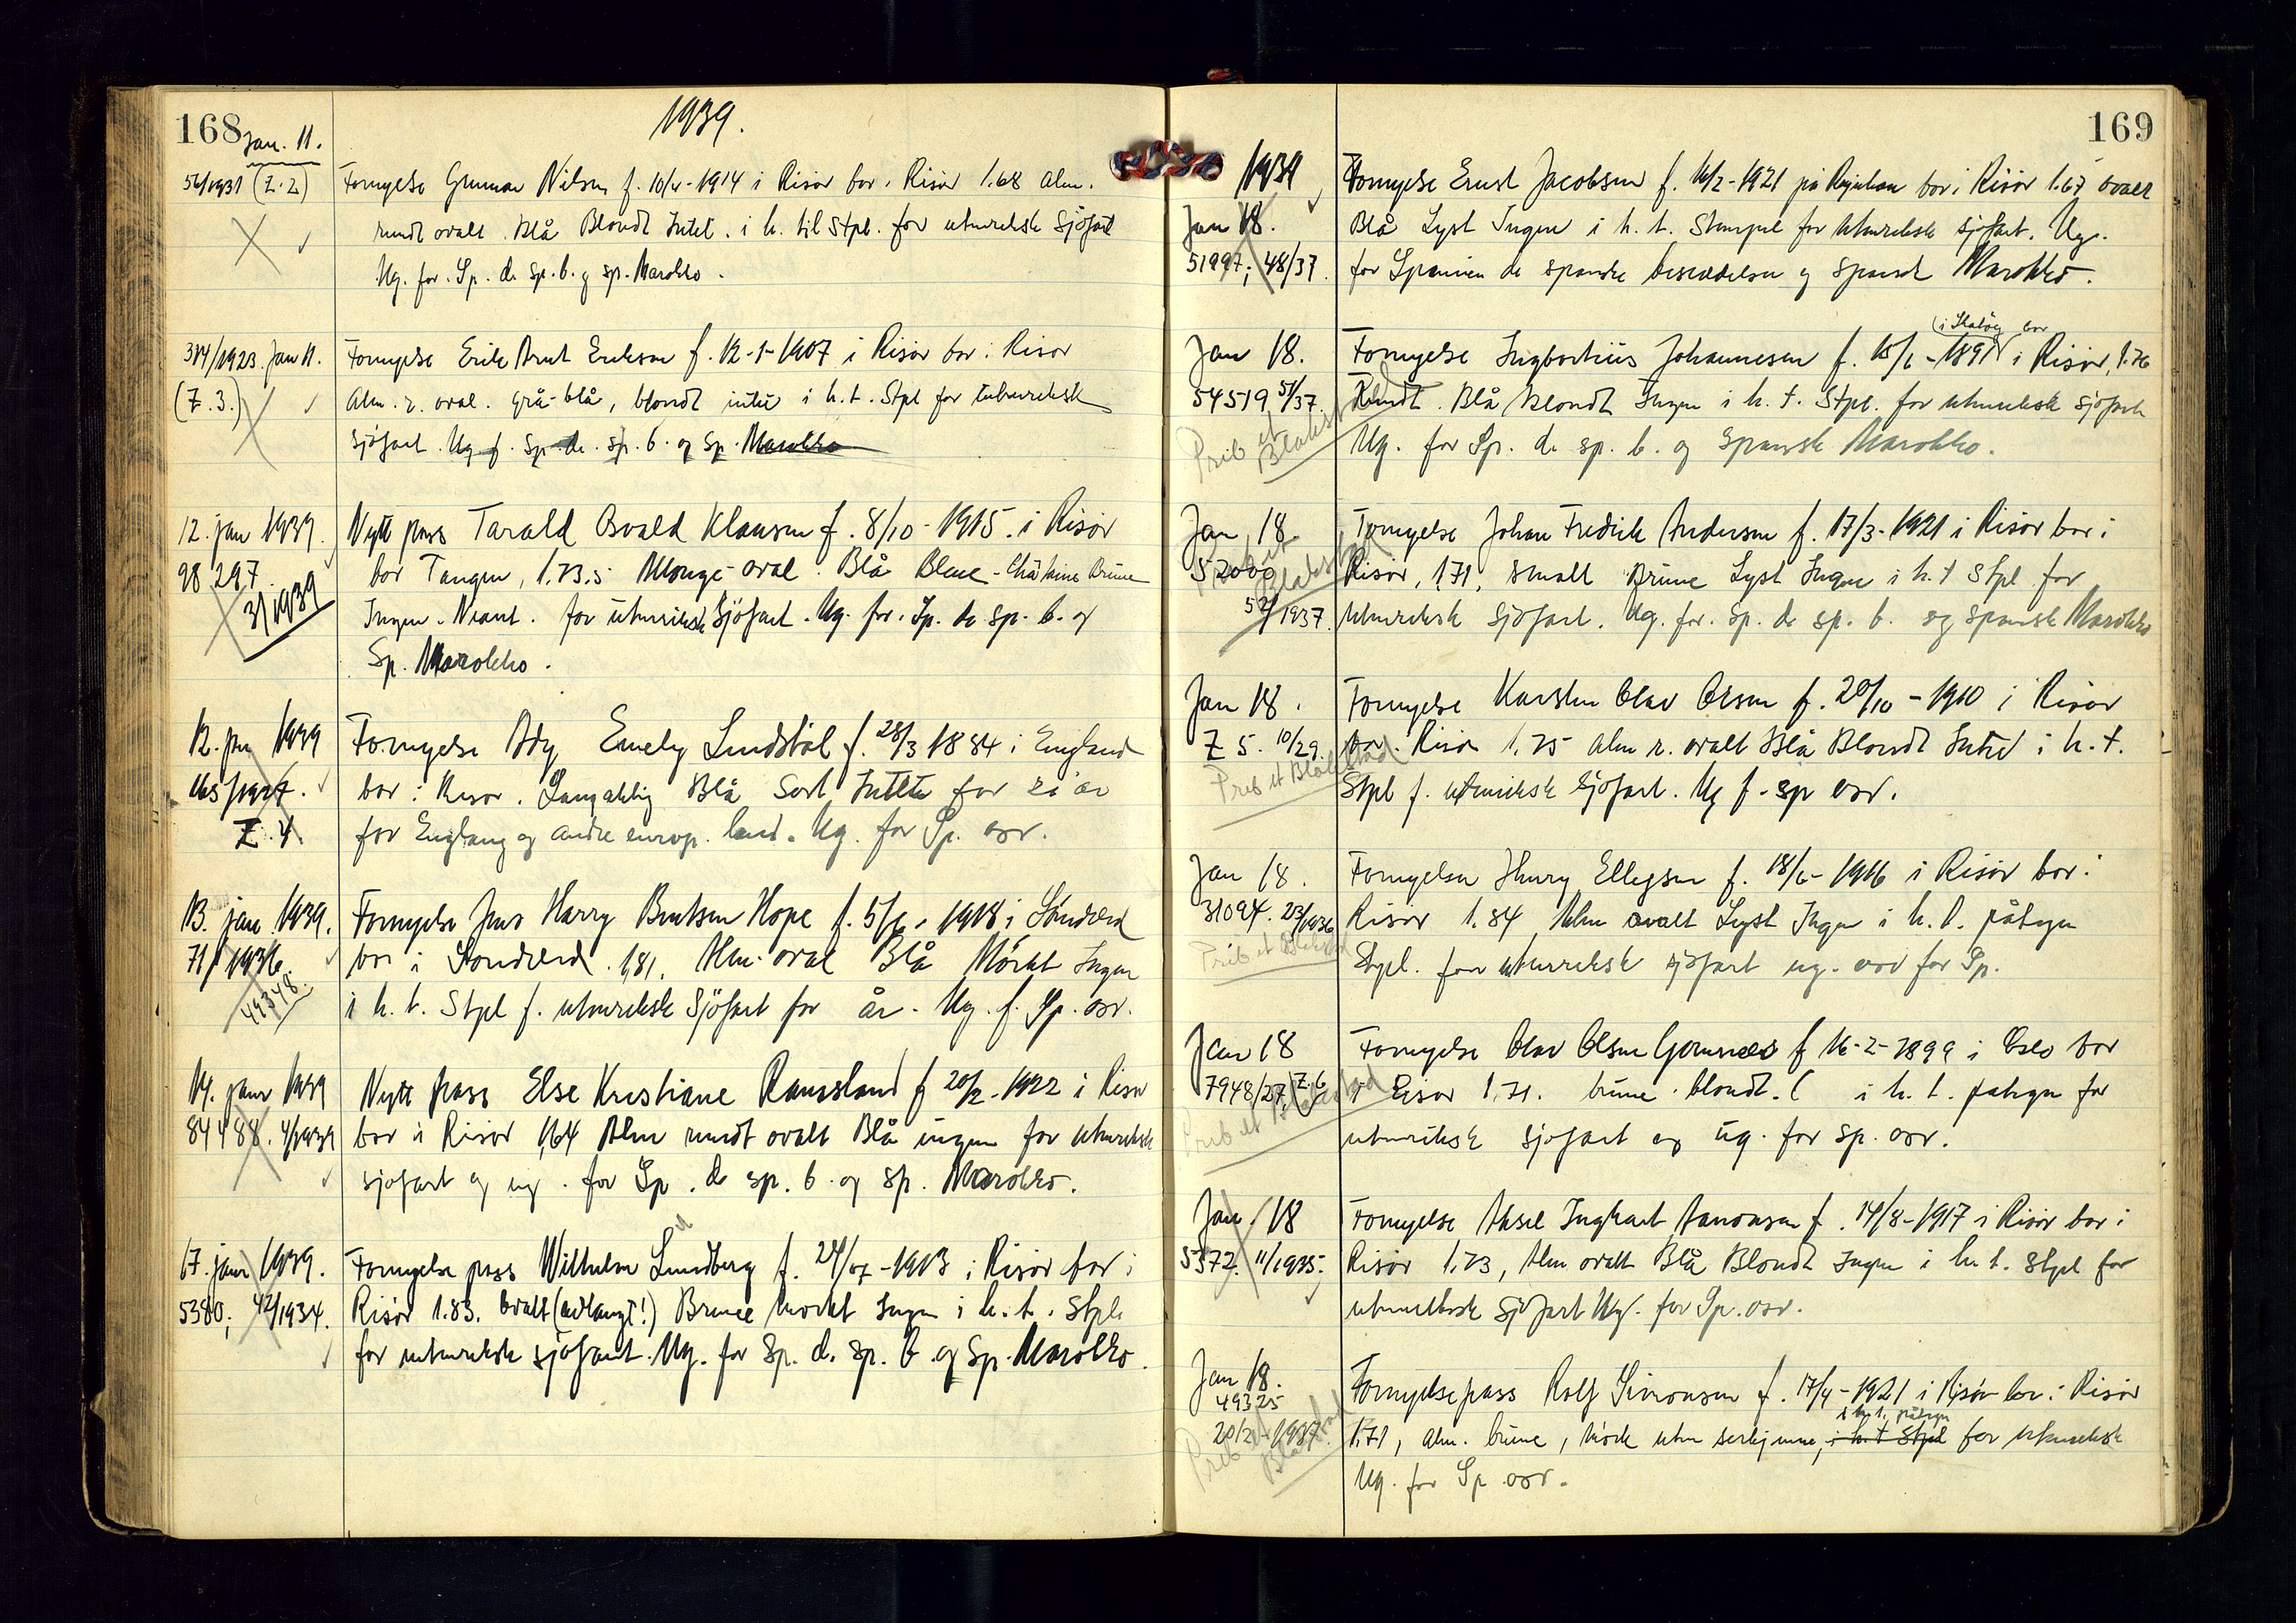 168
1939.
Jan. 11.
56/1931 (Z.2)
Fornyelse Gunnar Nilsen f. 10/4-1914 i Risør bor i Risør 1.68 Alm.
rundt ovalt. Blå Blondt Intet. i h. til Stpl. for utenriksk Sjøfart
Ug. for. Sp. de sp. b. og sp. Marokko.
384/1923. Jan 11.
(Z.3.)
Fornyelse Erik Arnt Eriksen f. 12-1-1907 i Risør bor i Risør
Alm. r. oval. grå-blå, blondt intet i h. t. Stpl for utenriksk
sjøfart. Ug f. Sp. de. sp. b. og Sp. Marokko
12. jan 1939.
98297.
3/1939
Nytt pass Tarald Osvald Klausen f. 8/10-1915. i Risør
bor Tangen, 1.73.5 oval. Blå Brune
Ingen. for utenriksk Sjøfart. Ug. for. Sp. de sp. b. og
Sp. Marokko.
12. jan 1939
165/1927.
Z. 4
Fornyelse Ady Emely Lindstøl f. 28/3 1884 i England
bor i Risør. Blå Sort Intet for år
for England og andre europ. land. Ug. for Sp. osv.
13. jan. 1939.
71/1936.
49348.
Fornyelse Jens Harry Bentsen Hope f. 5/6-1918 i Søndeled
bor i Søndeled 1,81. Alm. oval Blå Mörkt Ingen
i h. t. Stpl f. utenriksk Sjøfart for år. Ug. f. Sp. osv.
14. jan 1939
84488. 4/1939
Nytt pass Else Kristiane f 20/2-1922 i Risør
bor i Risør 1,64 Alm rundt ovalt Blå ingen for utenriksk
sjøfart og ug. for Sp. de sp. b. og sp. Marokko.
17. jan 1939.
5380; 42/1934.
Fornyelse pass Wilhelm Lundberg f. 24/07-1913 i Risør bor i
Risør 1.83. ovalt (avlangt!) Brune mörkt Ingen i h. t. Stpl.
for utenriksk sjøfart. Ug. for Sp. de. sp. b og Sp. Marokko.
169
1939
Jan 18.
51997; 48/37.
Fornyelse Ernst Jacobsen f. 16/2-1921 på Rjukan bor i Risör 1.67 ovalt
Blå Lyst Ingen i h. t. Stempel for utenriksk sjøfart. Ug.
for Spanien de spanske besiddelser og spansk Marokko.
Jan 18.
54519 51/37.
(i Skatöy bor
Fornyelse Ingbertius Johannesen f. 15/6-1897 i Risør, 1.76
Rundt. Blå blondt Ingen i h. t. Stpl. for utenriksk sjøfart
Ug. for Sp. de sp. b. og Spansk Marokko.
Jan 18.
52000
52/1937.
Fornyelse Johan Fredrik Andersen f. 17/3-1921 i Risør bor i
Risør, 1,71, smalt Brune Lyst Ingen i h. t Stpl for
utenriksk sjøfart. Ug. for. Sp. de sp. b. og spansk Marokko
Jan 18.
Z 5. 10/29.
Fornyelse Karsten Olav Olsen f. 20/10-1910 i Risör
bor. Risör 1,75 alm r. ovalt Blå Blondt Intet i h. t.
Stpl f. utenriksk Sjøfart. Ug f. sp osv.
Jan 18.
31094. 23/1936
Fornyelse Henry Ellegsen f. 18/6-1916 i Risör bor i
Risör 1.84, Alm ovalt Lyst Ingen i h. t. påtegn
Stpl. for utenriksk sjöfart ug. osv for Sp.
Jan 18
7948/27, (Z. 6
Fornyelse Olav Olsen f 16-2-1899 i Oslo bor
i Risør 1.71. brune. blondt. ( i h. t. påtegn for
utenriksk sjøfart og ug. for sp. osv.
Jan. 18
5372. 11/1935.
Fornyelse Aksel Ingvart Aanonsen f. 14/8-1917 i Risör bor i
Risør 1.73, Alm ovalt Blå Blondt Ingen i h. t. Stpl for
utenriksk Sjøfart Ug. for Sp. osv.
Jan 18.
49325
20/2-1937.
Fornyelse pass Rolf Simonsen f. 17/4-1921 i Risör bor i Risör
i h. t. påtegn
1.71, alm. brune, mörk uten serkjenne, i h. t Stpl for utenriksk
Ug. for Sp osv.